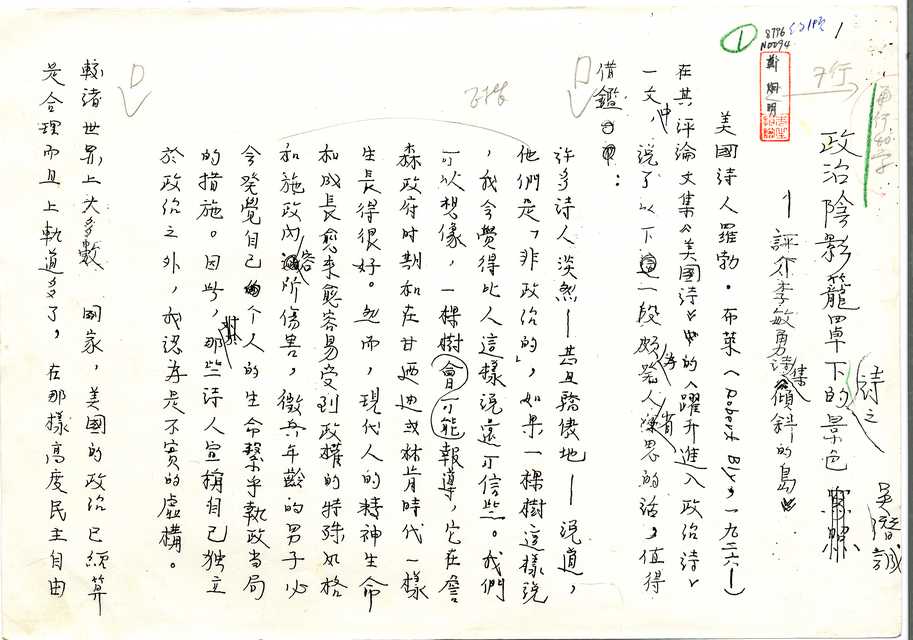 1
8776
N0094
鄭烱明
7行
每行幼字
政治陰影籠罩下的景色
詩之
吳潛誠
——評介李敏勇詩集《傾斜的島》
美國詩人羅勃・布萊(Robert Bly,一九二六—)
在其評論文集《美國詩》中的〈躍升進入政治詩〉
一文中,說了以下這一段頗為發人省思的話,值得
借鑑:
許多詩人淡然——甚且驕傲地——說道,
他們是「非政治的」,如果一棵樹這樣說
,我會覺得比人這樣說還可信些。我們
可以想像,一棵樹會可能報導,它在詹
森政府時期和在甘迺迪或林肯時代一樣
生長得很好。然而,現代人的精神生命
和成長愈來愈容易受到政權的特殊風格
和施政內容所傷害,徵兵年齡的男子必
會發覺自己個人的生命繫乎執政當局
的措施。因此,那些詩人宣稱自己獨立
於政治之外,我認為是不實的虛構。
較諸世界上大多數國家,美國的政治已經算
是合理而且上軌道多了,在那樣高度民主自由